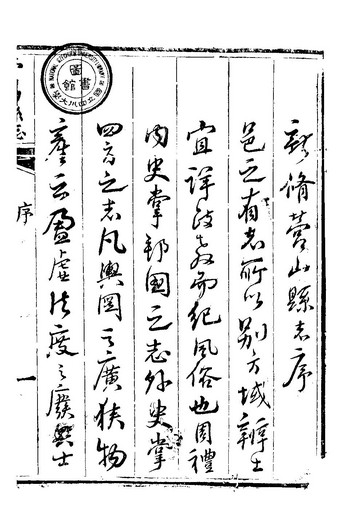 新脩營山縣志序
邑之有志所以別方域辨土
宜詳政教而紀風俗也周禮
內史掌邦國之志外史掌
四方之志凡輿圖之廣狹物
產之盈虛法度之廢興士
序
一
圖書館